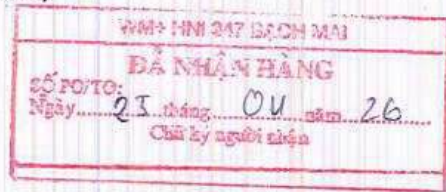 WM+ HNI 347 BẠCH MAI
ĐÃ NHẬN HÀNG
SỐ PO/TO:
Ngày 23 tháng 04 năm 26
Chữ ký người nhận